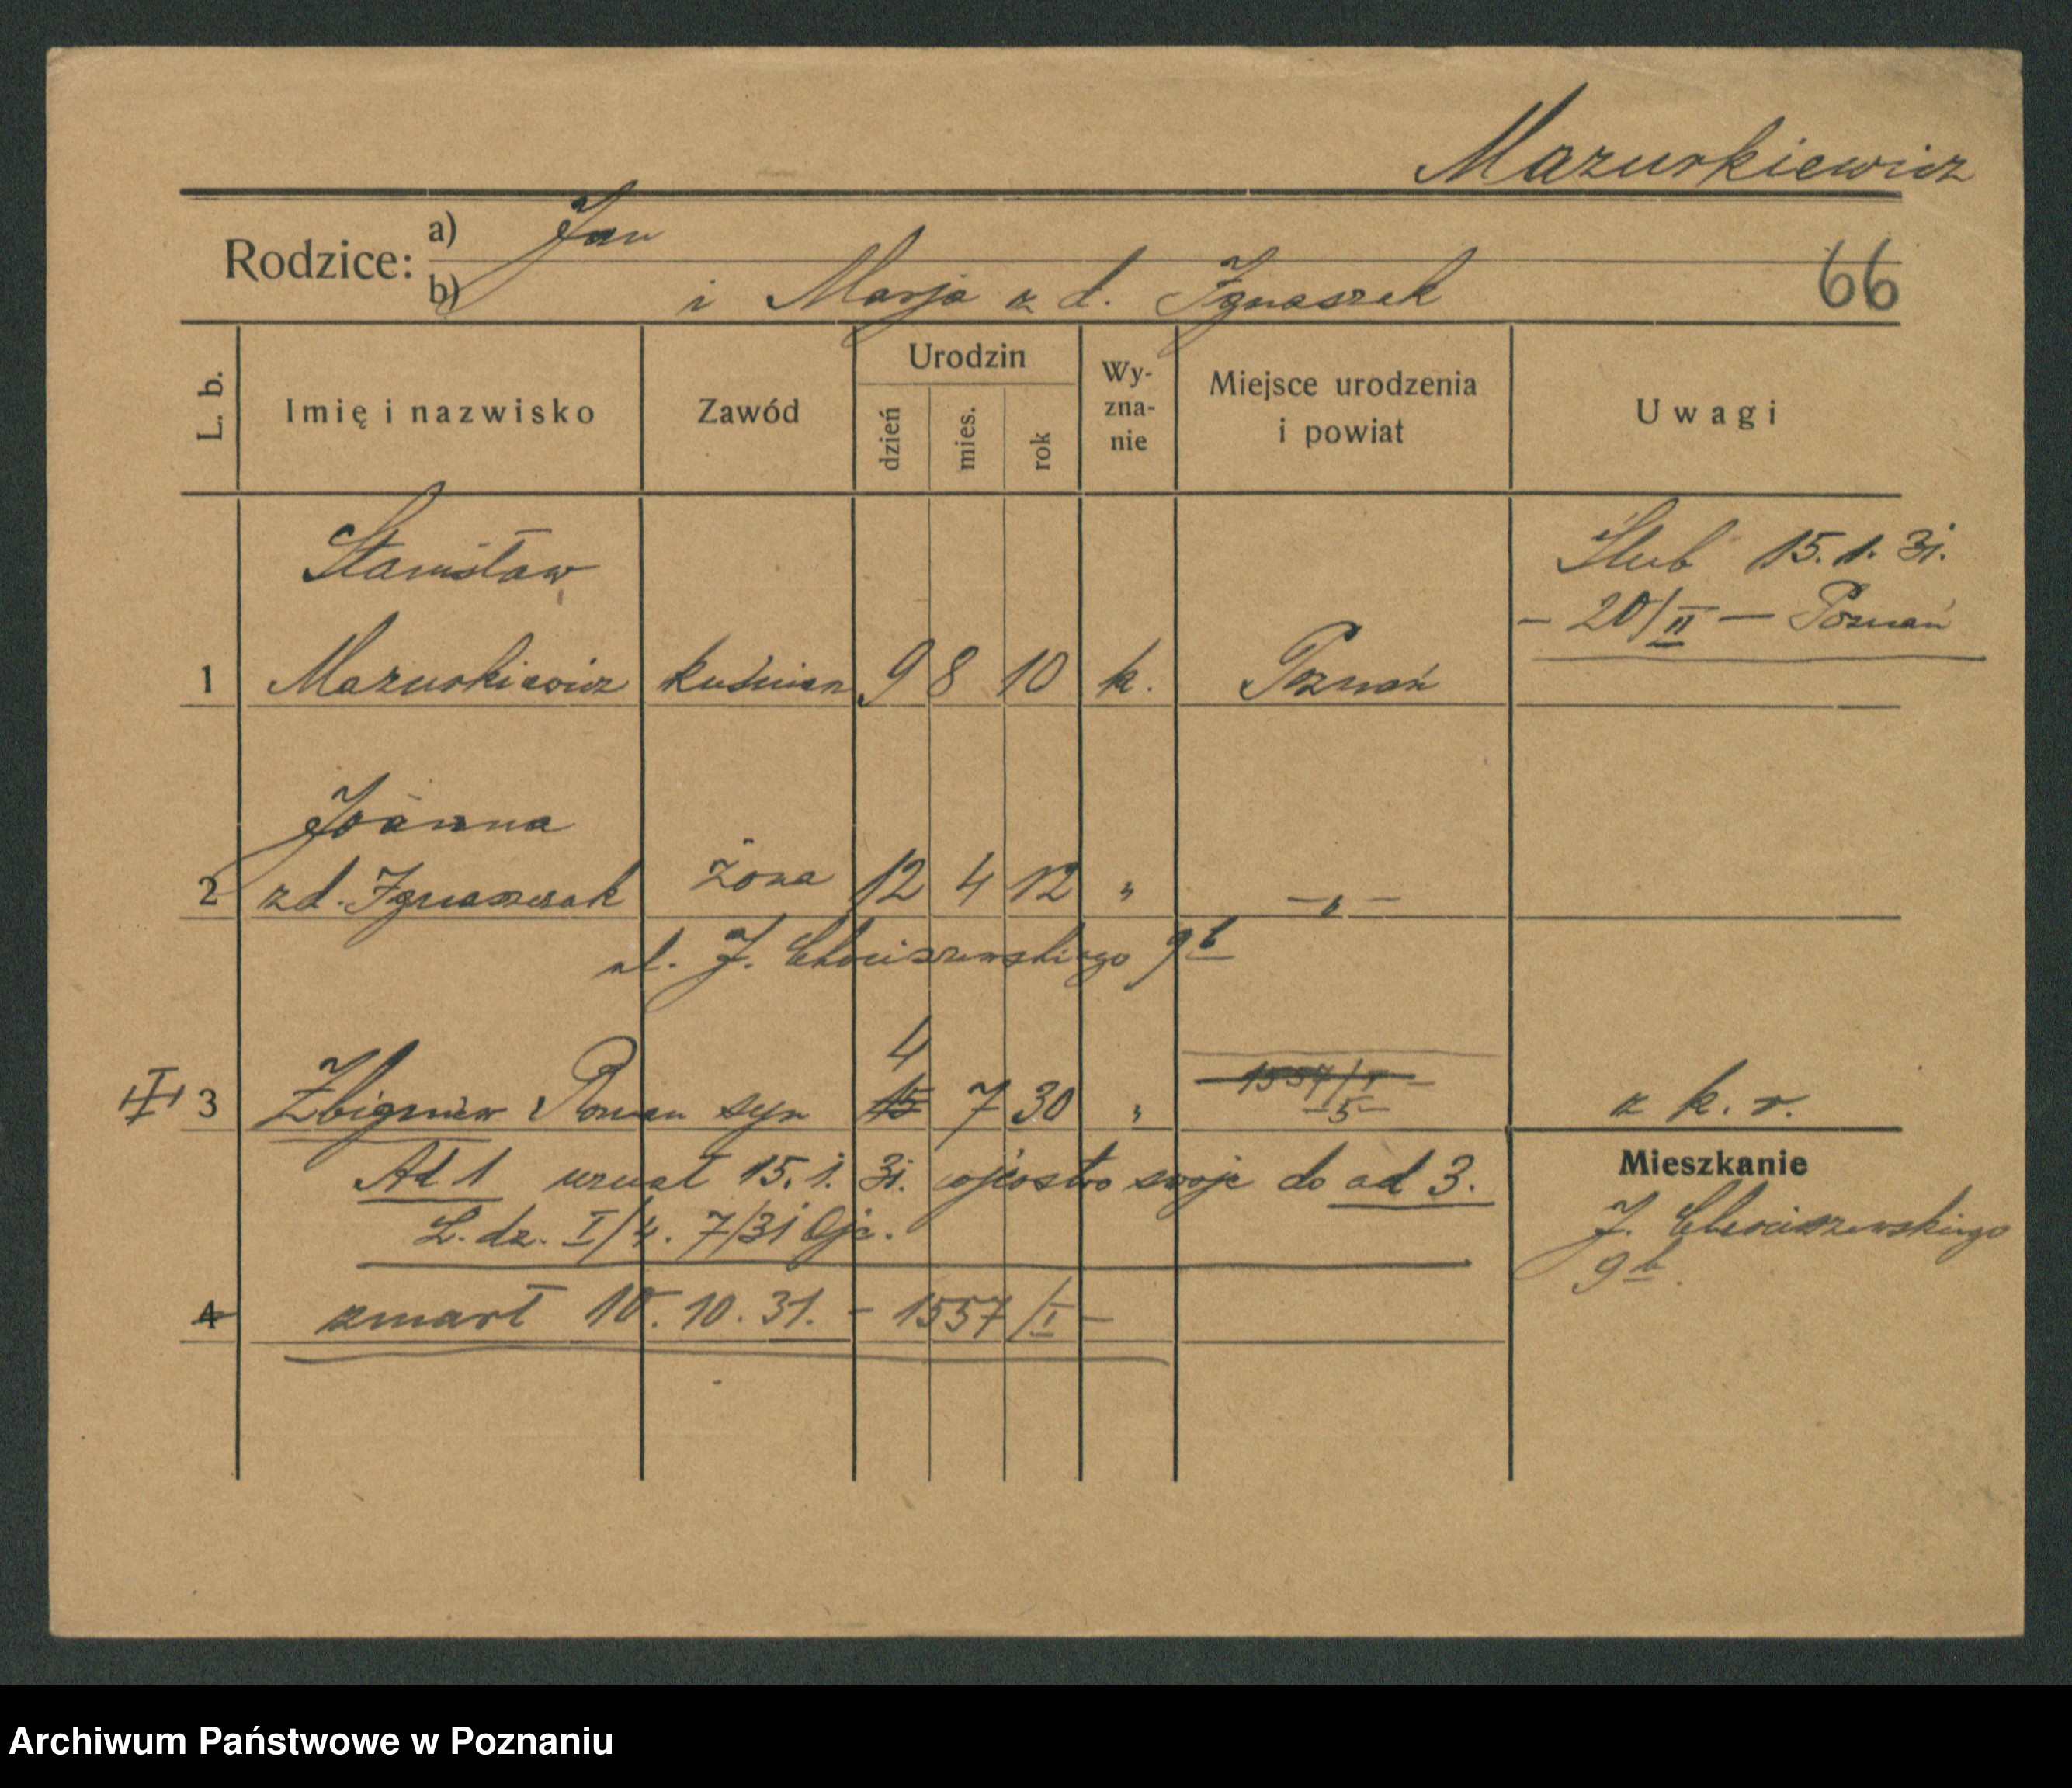 Mazurkiewicz
Rodzice: a) Jan
b) i Marja z d. Ignaszak
66
L. b. Imię i nazwisko Zawód Urodzin dzień mies. rok Wy-zna-nie Miejsce urodzenia i powiat Uwagi
Ślub 15.1.31.
– 20/II – Poznań
Stanisław
1 Mazurkiewicz kuśnierz 9 8 10 k. Poznań
Joanna
2 zd. Ignaszak żona 12 4 12 " – " –
ul. J. Chociszewskiego 9b
4
3 Zbigniew Roman syn 15 7 30 " 1557/I – z k. r.
–5–
Ad 1 uznał 15.1.31. ojcostwo swoje do ad 3.
L. dz. I/4. 7/31 Ojc.
Mieszkanie
J. Chociszewskiego
9b.
4 zmarł 10.10.31. – 1557/I –
Archiwum Państwowe w Poznaniu